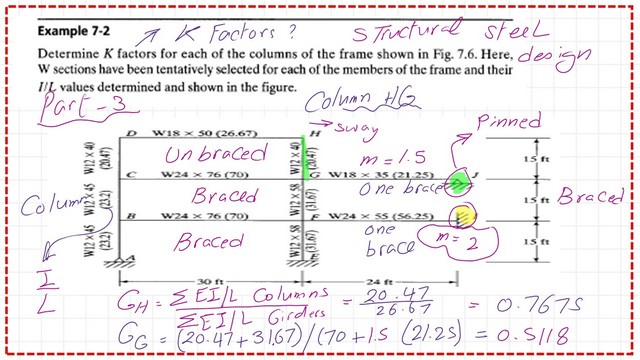 Example 7-2
↗ K Factors ?
Structural Steel
design
Determine K factors for each of the columns of the frame shown in Fig. 7.6. Here,
W sections have been tentatively selected for each of the members of the frame and their
I/L values determined and shown in the figure.
Part-3
Column HG
→ sway
Pinned
D
W18 × 50 (26.67)
H
Unbraced
W12 × 40
(20.47)
W12 × 40
(20.47)
m = 1.5
15 ft
C
W24 × 76 (70)
G
W18 × 35 (21.25)
J
Column
Braced
W12 × 45
(23.2)
W12 × 58
(31.67)
one brace
15 ft
Braced
B
W24 × 76 (70)
F
W24 × 55 (56.25)
Braced
W12 × 45
(23.2)
W12 × 58
(31.67)
one
brace
m = 2
15 ft
A
I
L
30 ft
24 ft
G_H = ΣEI/L Columns / ΣEI/L Girders = 20.47 / 26.67 = 0.7675
G_G = (20.47 + 31.67) / (70 + 1.5 (21.25) = 0.5118